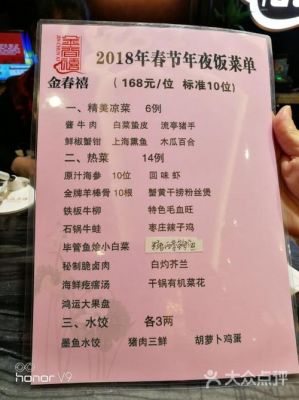 金春禧
2018年春节年夜饭菜单
金春禧 （168元/位 标准10位）
一、精美凉菜 6例
酱牛肉 白菜蜇皮 流亭猪手
鲜椒蟹钳 上海熏鱼 木瓜百合
二、热菜 14例
原汁海参 10位 回味虾
金牌羊棒骨 10根 蟹黄干捞粉丝煲
铁板牛柳 特色毛血旺
石锅牛蛙 枣庄辣子鸡
毕管鱼烩小白菜
秘制脆卤肉 白灼芥兰
海鲜疙瘩汤 干锅有机菜花
鸿运大果盘
三、水饺 各3两
墨鱼水饺 猪肉三鲜 胡萝卜鸡蛋
honor V9
大众点评